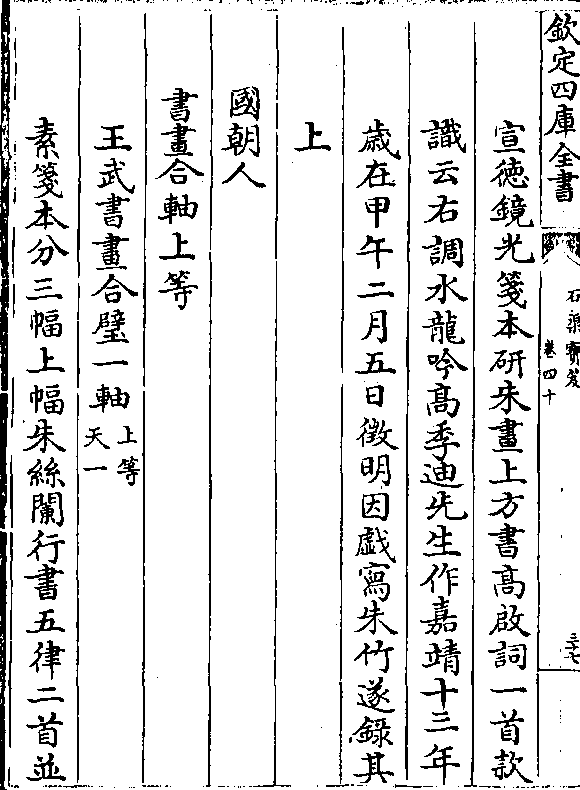 欽定四庫全書
石渠寶笈
卷四十
三七
宣德鏡光箋本研朱畫上方書高啟詞一首款
識云右調水龍吟髙季迪先生作嘉靖十三年
歲在甲午二月五日徵明因戲寫朱竹遂錄其
上
國朝人
書畫合軸上等
王武書畫合璧一軸上等天一
素箋本分三幅上幅朱絲闌行書五律二首並